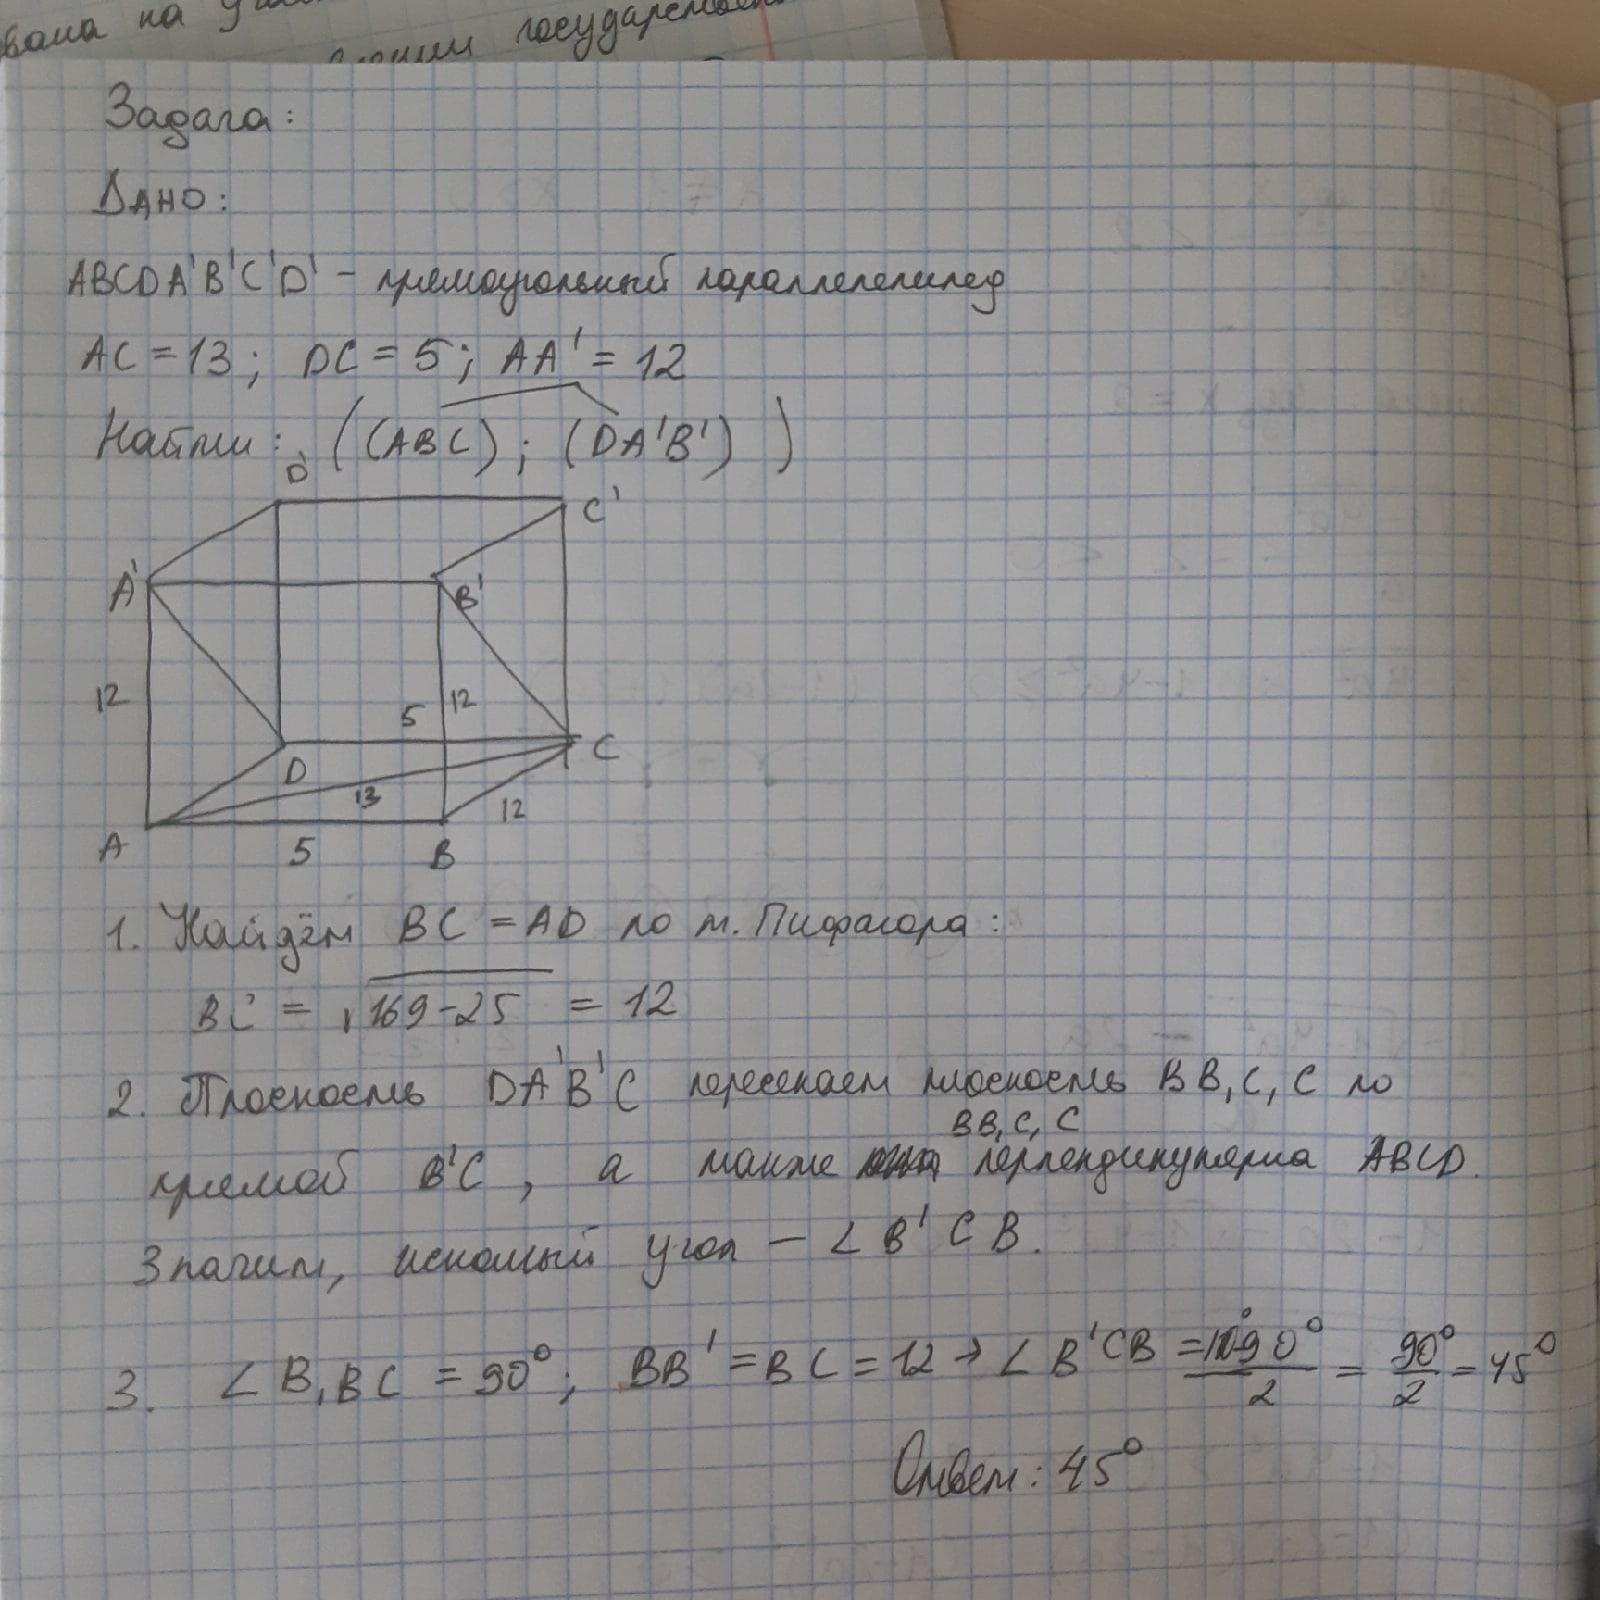 вана на
государственн
Задача:
Дано:
ABCDA'B'C'D' – прямоугольный параллелепипед
AC = 13; DC = 5; AA' = 12
Найти: ((ABC); (DA'B'))
D'
C'
A'
B'
12
5
12
D
C
13
12
A
5
B
1. Найдём BC = AD по т. Пифагора:
BC = √169-25 = 12
2. Плоскость DA'B'C пересекает плоскость BB₁C₁C по
BB₁C₁C
прямой B'C, а также перпендикулярна ABCD.
Значит, искомый угол – ∠B'CB.
3. ∠B₁BC = 90°; BB' = BC = 12 → ∠B'CB = 90°/2 = 90°/2 = 45°
Ответ: 45°